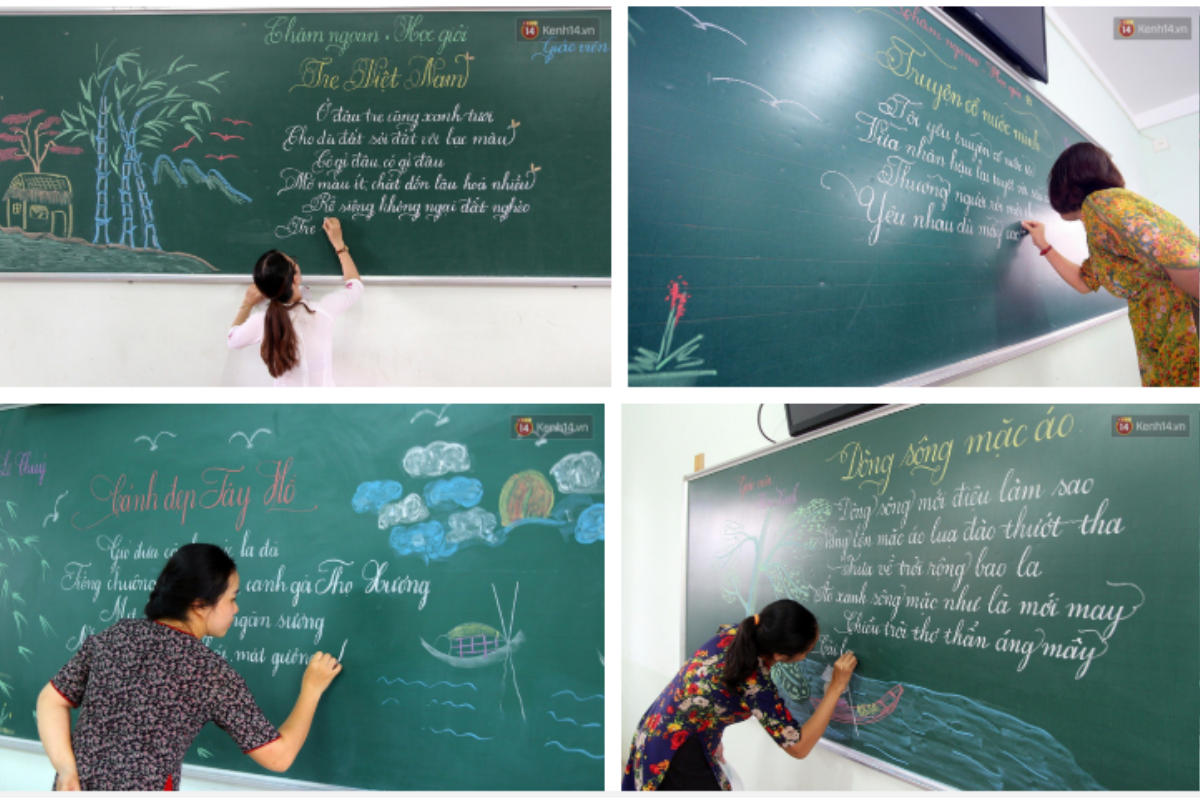 Chăm ngoan . Học giỏi
14 Kenh14.vn
Giáo viên
Tre Việt Nam
Ở đâu tre cũng xanh tươi
Cho dù đất sỏi đất vôi bạc màu
Có gì đâu, có gì đâu
Mỡ màu ít, chất dồn lâu hoá nhiều
Rễ siêng không ngại đất nghèo
Tre
14 Kenh14.vn
Chăm ngoan - Học giỏi
Truyện cổ nước mình
Tôi yêu truyện cổ nước tôi
Vừa nhân hậu lại tuyệt vời sâu
Thương người rồi mới
Yêu nhau dù mấy
14 Kenh14.vn
Thuý
Cảnh đẹp Tây Hồ
Gió đưa la đà
Tiếng chuông canh gà Thọ Xương
ngàn sương
mặt gương
14 Kenh14.vn
Dòng sông mặc áo
Giáo viên
Dòng sông mới điệu làm sao
Nắng lên mặc áo lụa đào thướt tha
Trưa về trời rộng bao la
Áo xanh sông mặc như là mới may
Chiều trôi thơ thẩn áng mây